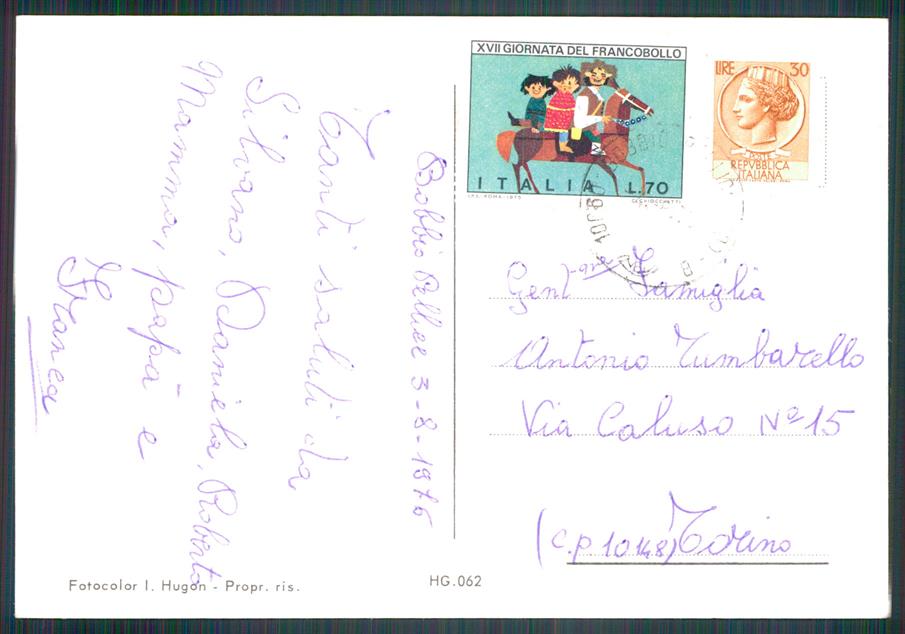 Bobbio Pellice 3-8-1976
Tanti saluti da
Silvano, Daniela, Roberto
Mamma, papà e
Franca
Fotocolor I. Hugon - Propr. ris.
HG.062
XVII GIORNATA DEL FRANCOBOLLO
ITALIA L.70
I.P.S. ROMA-1975
LIRE 30
POSTE
REPVBBLICA
ITALIANA
Gent. Famiglia
Antonio Tumbarello
Via Caluso Nº 15
(c.p. 10148) Torino